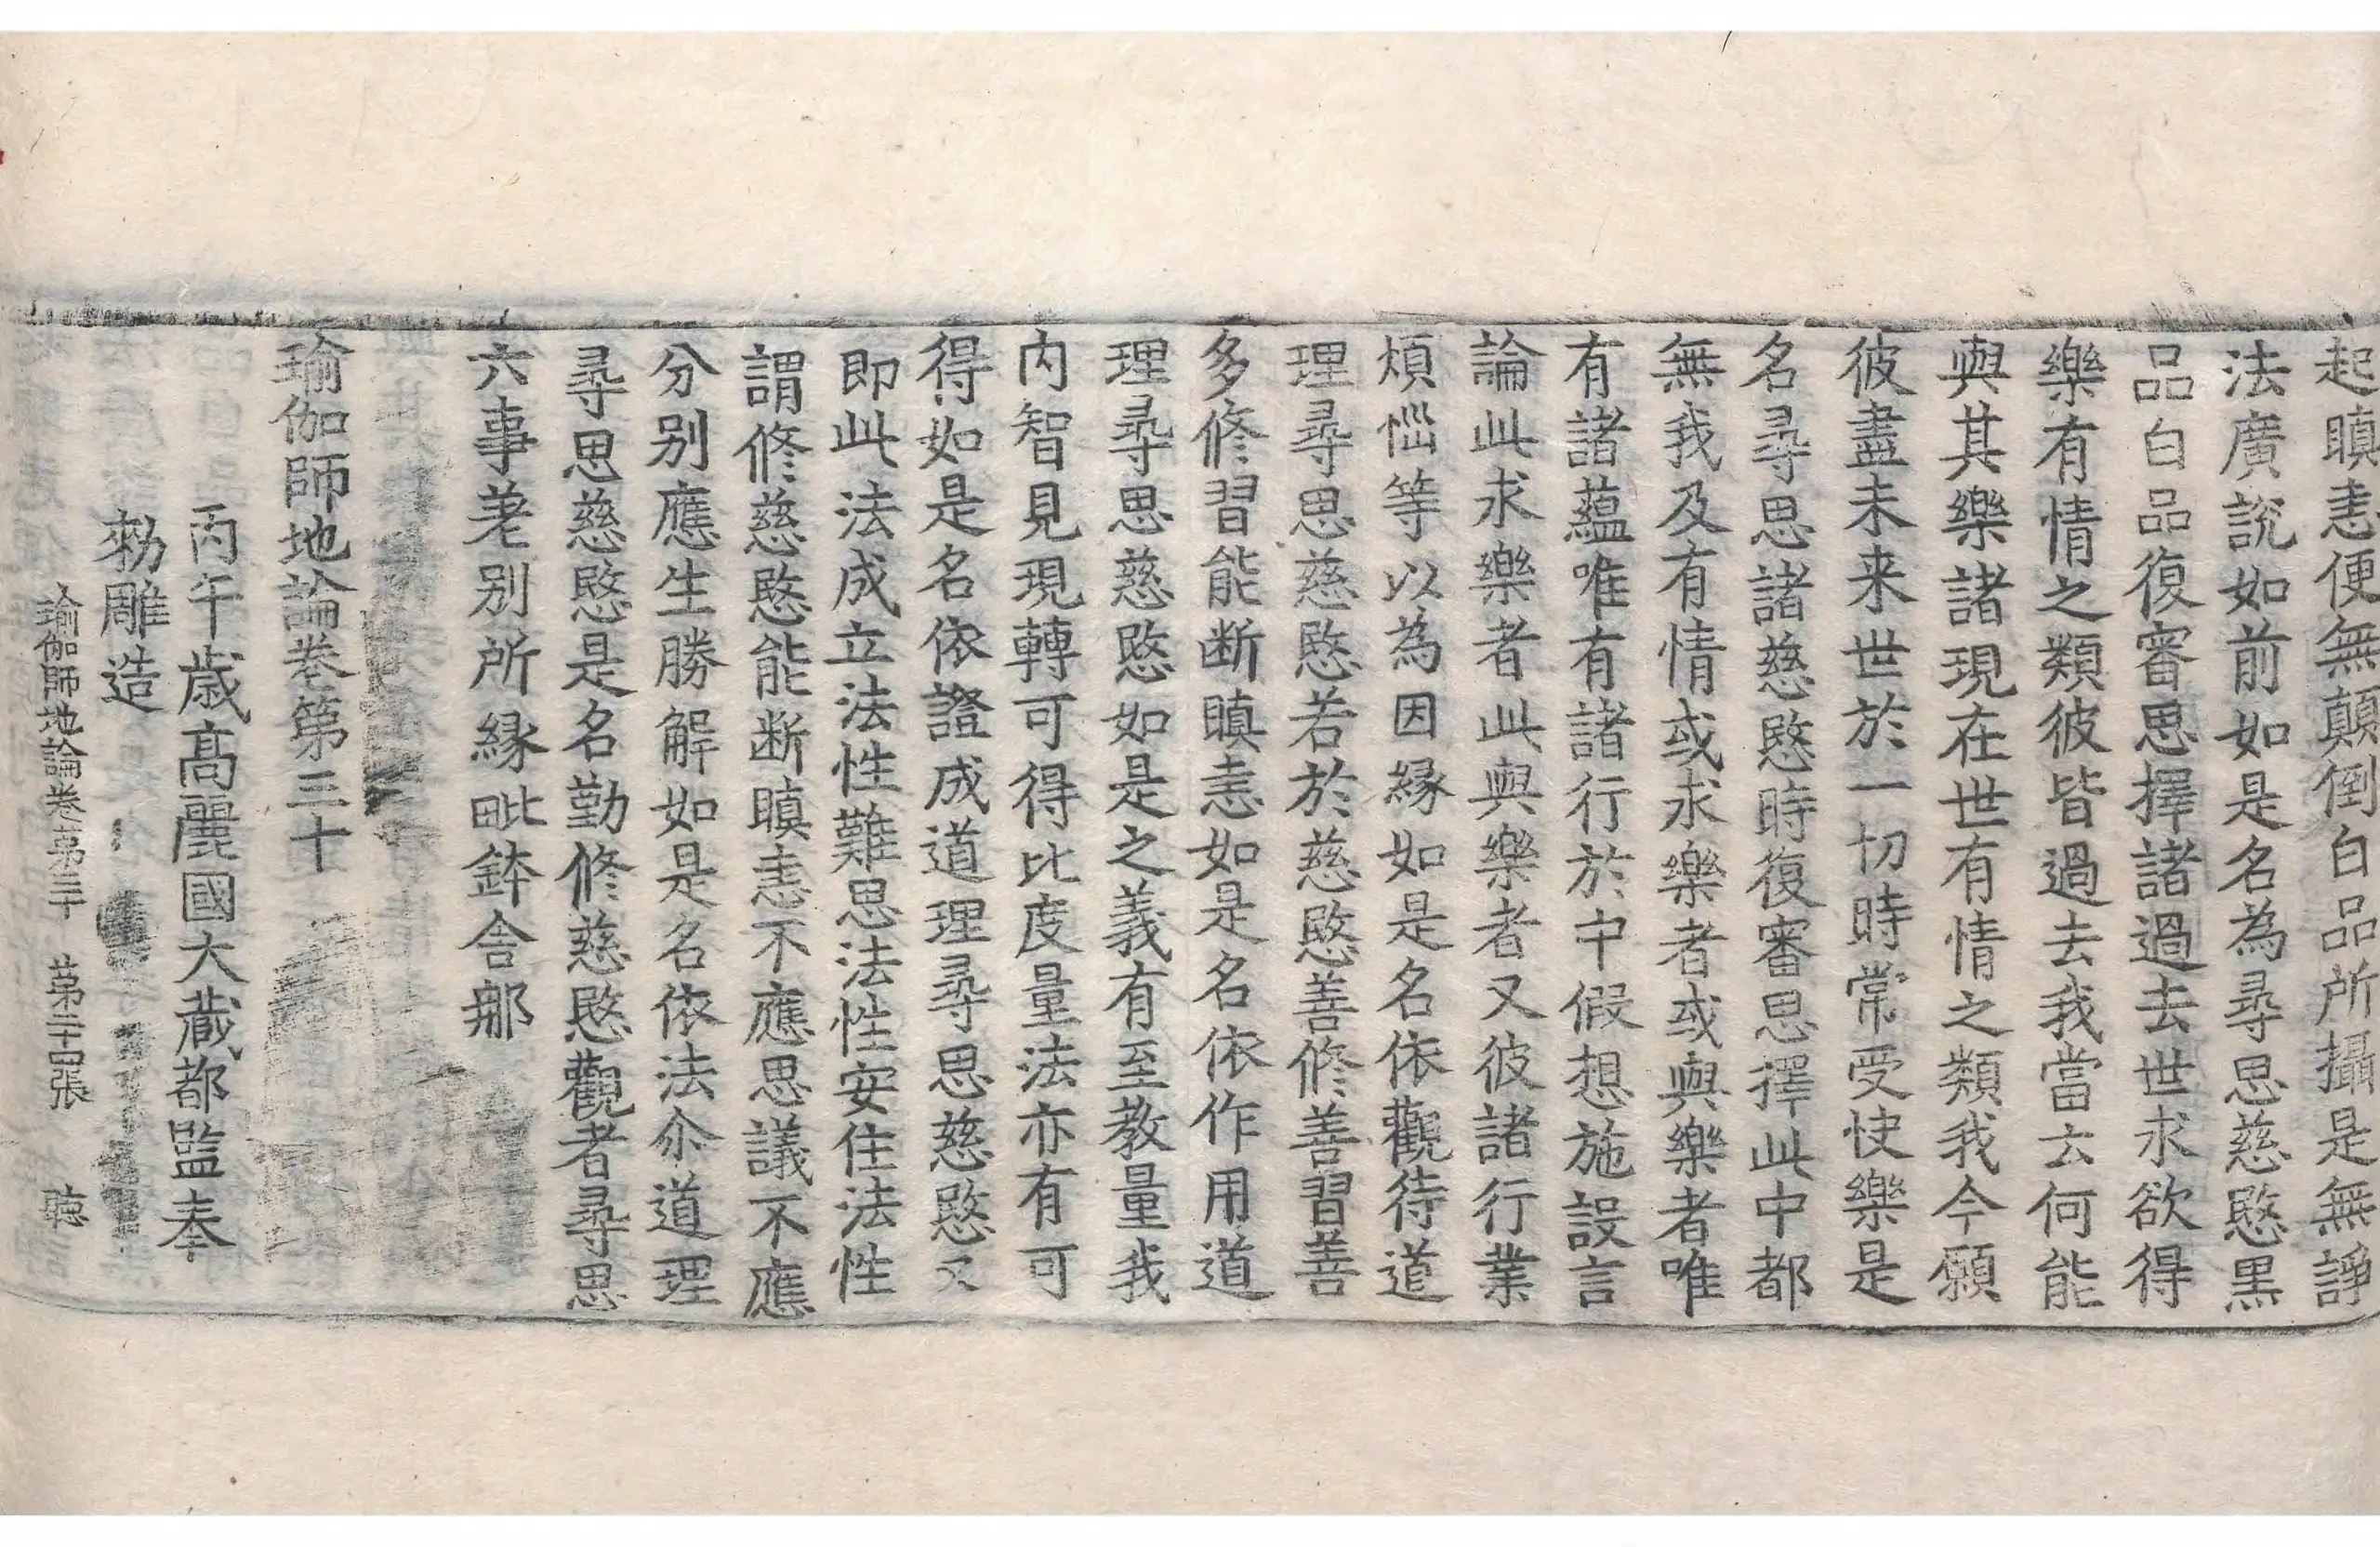 起瞋恚便無顛倒白品所攝是無諍
法廣說如前如是名為尋思慈愍黑
品白品復審思擇諸過去世求欲得
樂有情之類彼皆過去我當云何能
與其樂諸現在世有情之類我今願
彼盡未来世於一切時常受快樂是
名尋思諸慈愍時復審思擇此中都
無我及有情或求樂者或與樂者唯
有諸蘊唯有諸行於中假想施設言
論此求樂者此與樂者又彼諸行業
煩惱等以為因縁如是名依觀待道
理尋思慈愍若於慈愍善修善習善
多修習能断瞋恚如是名依作用道
理尋思慈愍如是之義有至教量我
内智見現轉可得比度量法亦有可
得如是名依證成道理尋思慈愍又
即此法成立法性難思法性安住法性
謂修慈愍能断瞋恚不應思議不應
分别應生勝解如是名依法尒道理
尋思慈愍是名勤修慈愍觀者尋思
六事差别所縁毗鉢舍那
瑜伽師地論卷第三十
丙午歳高麗國大藏都監奉
勅雕造
瑜伽師地論卷第三十　第二十四張　聴